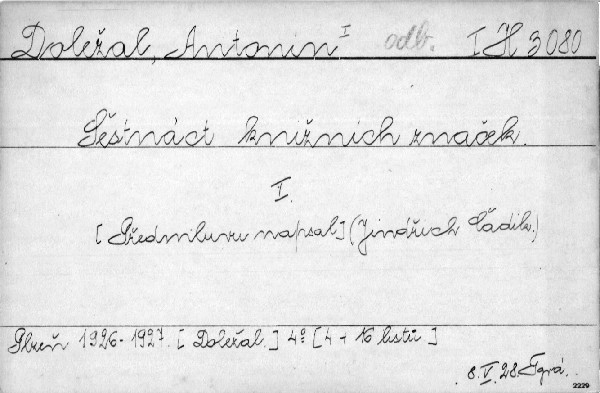 Doležal, Antonín I odb. I H 3080
Šestnáct knižních značek.
I.
[Předmluvu napsal] (Jindřich Čadík.)
Plzeň 1926-1927. [Doležal.] 4° [4 + 16 listů]
8.V.28.
2229